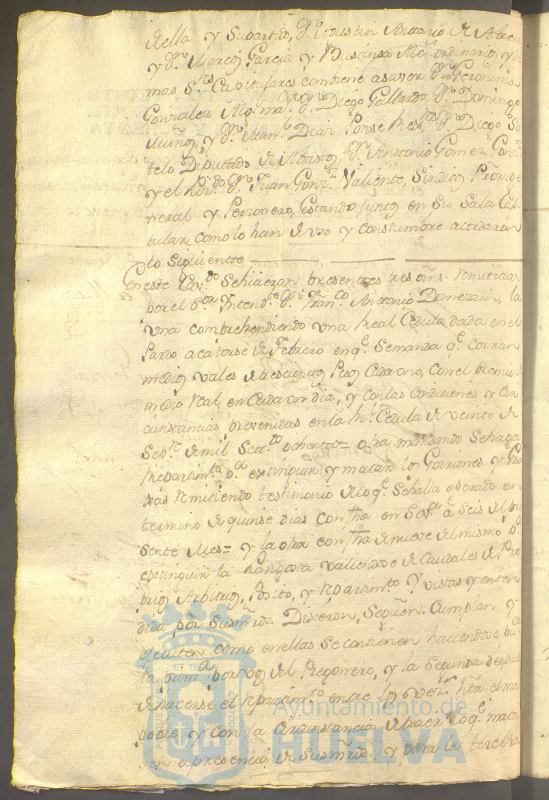 della y su partido, Dn
y Dn Marcos Garcia y Bustinza Mes. ordinarios y de
mas Sres Capitulares combiene a saver Dn Geronimo
Gonzalez Dn Diego Gallardo, Dn Domingo
Muñoz, y Dn Diaz Ponse Dn Diego So
telo Diputados de Abasto, Dn Antonio Gomez
y el Dn Juan Gonz. Valiente, Sindico Pror. Ge
neral y Personero, estando juntos en su Sala Cap
itular, como lo han de uso y constumbre acordaron
lo siguiente
En este Cavdo Se hicieron presentes tres ôrns. remitidas
por el Sor Intendte Dn Franco Antonio Domezain, la
una comprehendiendo una Real Cedula dada en el
Pardo a catorse de Febrero en qe. se manda qe. corran
medios vales de trescientos Pesos Cada uno, con el premio de
medio Real en Cada un dia, y con las condiciones y cir
cunstancias prevenidas en la Rl. Cedula de veinte de
Sepre. de mil Settos ochenta = otra mandando se haga
repartimto. pa. extinguir y matar los Gorriones y
remitiendo testimonio de lo qe. se halla operado en
termino de quinse dias con fha en Seva. â seis del pre
sente Mes = y la otra con fha de nueve del mismo pa.
extinguir la Langosta valiendose de Caudales de Pro
pios Arbitrios, Posito, y repartimto. y vistas y enten
didas por sus mrds. Dixeron, se guarden Cumplan y
executen como en ellas se contienen haciendose
la prima. por vos del Pregonero, y la Segunda despues
de hacerse el repartimto. entre los vesos. hta. el
y con la Circunstancia de traer lo qe. mata
ren a presencia de sus mrds. y para la tercera
Ayuntamiento de
HUELVA